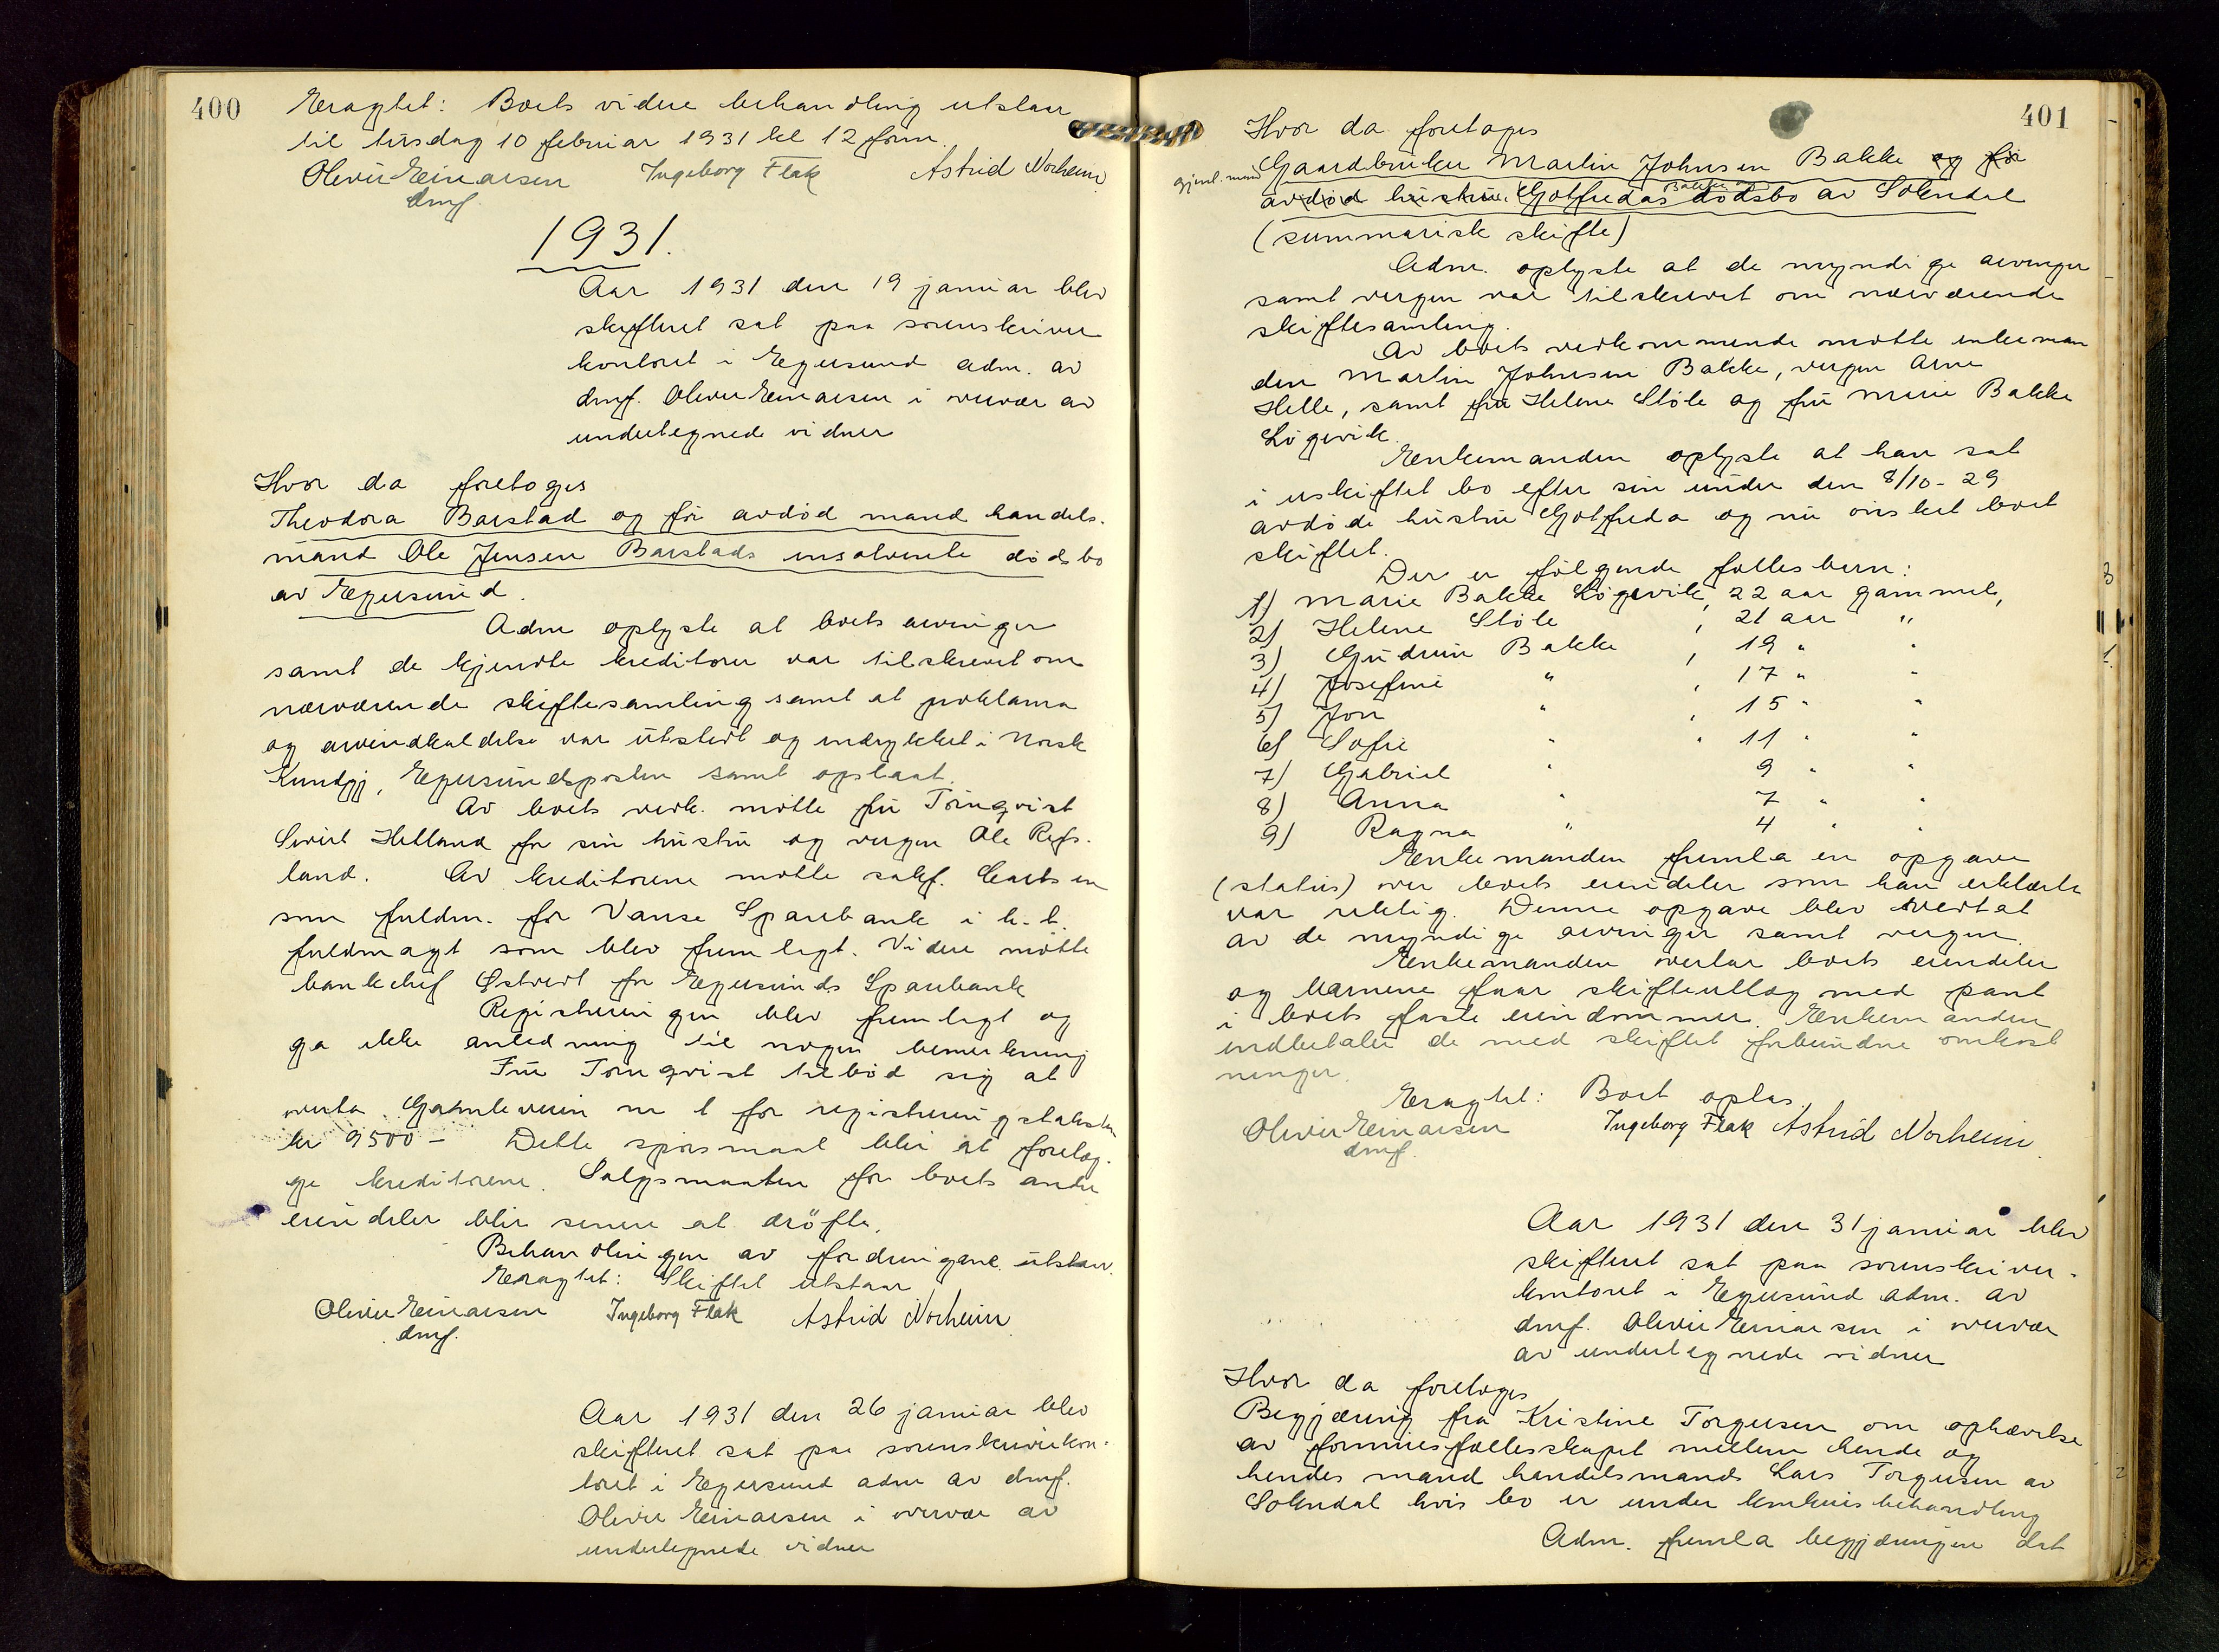 400
Eragtet: Boets videre behandling utstaar
til tirsdag 10 februar 1931 kl 12 form.
Oliver Einarsen Ingeborg Flak Astrid Norheim
dmf.
1931.
Aar 1931 den 19 januar blev
skifteret sat paa sorenskriver
kontoret i Egersund adm. av
dmf. Oliver Einarsen i overvær av
undertegnede vidner
Hvor da foretoges
Theodora Barstad og før avdød mand handels-
mand Ole Jensen Barstads insolvente dødsbo
av Egersund.
Adm oplyste at boets arvinger
samt de kjendte kreditorer var tilskrevet om
nærværende skiftesamling samt at proklama
og arveindkaldelse var utstedt og indrykket i Norsk
Kundgj, Egersundsposten samt opslaat.
Av boets vedk. møtte fru Tørnqvist
Sivert Helland for sin hustru og vergen Ole Refs-
land. Av kreditorene møtte sakf. Carlsen
som fuldm. for Vanse Sparebank i h. t.
fuldmagt som blev fremlagt. Videre møtte
bankchef Østvedt for Egersunds Sparebank
Registreringen blev fremlagt og
ga ikke anledning til nogen bemerkning
Fru Tørnqvist tilbød sig at
overta Gamleveien nr 1 for registreringstaksten
kr 9500 – Dette spørsmaal blir at forelæg-
ge kreditorene. Salgsmaaten for boets andre
eiendeler blir senere at drøfte.
Behandlingen av fordringene utstaar.
Eragtet: Skiftet utstaar
Oliver Einarsen Ingeborg Flak Astrid Norheim
dmf.
Aar 1931 den 26 januar blev
skifteret sat paa sorenskriverkon-
toret i Egersund adm av dmf.
Oliver Einarsen i overvær av
undertegnede vidner
401
Hvor da foretoges
Gaardbruker Martin Johnsen Bakke og før
gjenl. mand
Bakkes
avdød hustru Gotfredas dødsbo av Sokndal
(summarisk skifte)
Adm. oplyste at de myndige arvinger
samt vergen var tilskrevet om nærværende
skiftesamling.
Av boets vedkommende møtte enkeman
den Martin Johnsen Bakke, vergen Arne
Helle, samt fru Helene Støle og fru Marie Bakke
Løgevik.
Enkemanden oplyste at han sat
i uskiftet bo efter sin under den 8/10-29
avdøde hustru Gotfreda og nu ønsket boet
skiftet.
Der er følgende fellesbarn:
1) Marie Bakke Løgevik, 22 aar gammel,
2) Helene Støle , 21 aar "
3) Gudrun Bakke , 19 " "
4) Josefine " , 17 " "
5) Jon " , 15 " "
6) Sofie " , 11 " "
7) Gabriel " 9 " "
8) Anna " 7 " "
9) Ragna " 4 " "
Enkemanden fremla en opgave
(status) over boets eiendeler som han erklærte
var riktig. Denne opgave blev vedtat
av de myndige arvinger samt vergen.
Enkemanden overtar boets eiendeler
og barnene faar skifteutlæg med pant
i boets faste eiendommer. Enkemanden
indbetaler de med skiftet forbundne omkost
ninger.
Eragtet: Boet oplas.
Oliver Einarsen Ingeborg Flak Astrid Norheim.
dmf.
Aar 1931 den 31 januar blev
skifteret sat paa sorenskriver-
kontoret i Egersund adm. av
dmf. Oliver Einarsen i overvær
av undertegnede vidner
Hvor da foretoges
Begjæring fra Kristine Torgersen om ophævelse
av formuesfællesskapet mellem hende og
hendes mand handelsmand Lars Torgersen av
Sokndal hvis bo er under konkursbehandling
Adm. fremla begjæringen dat